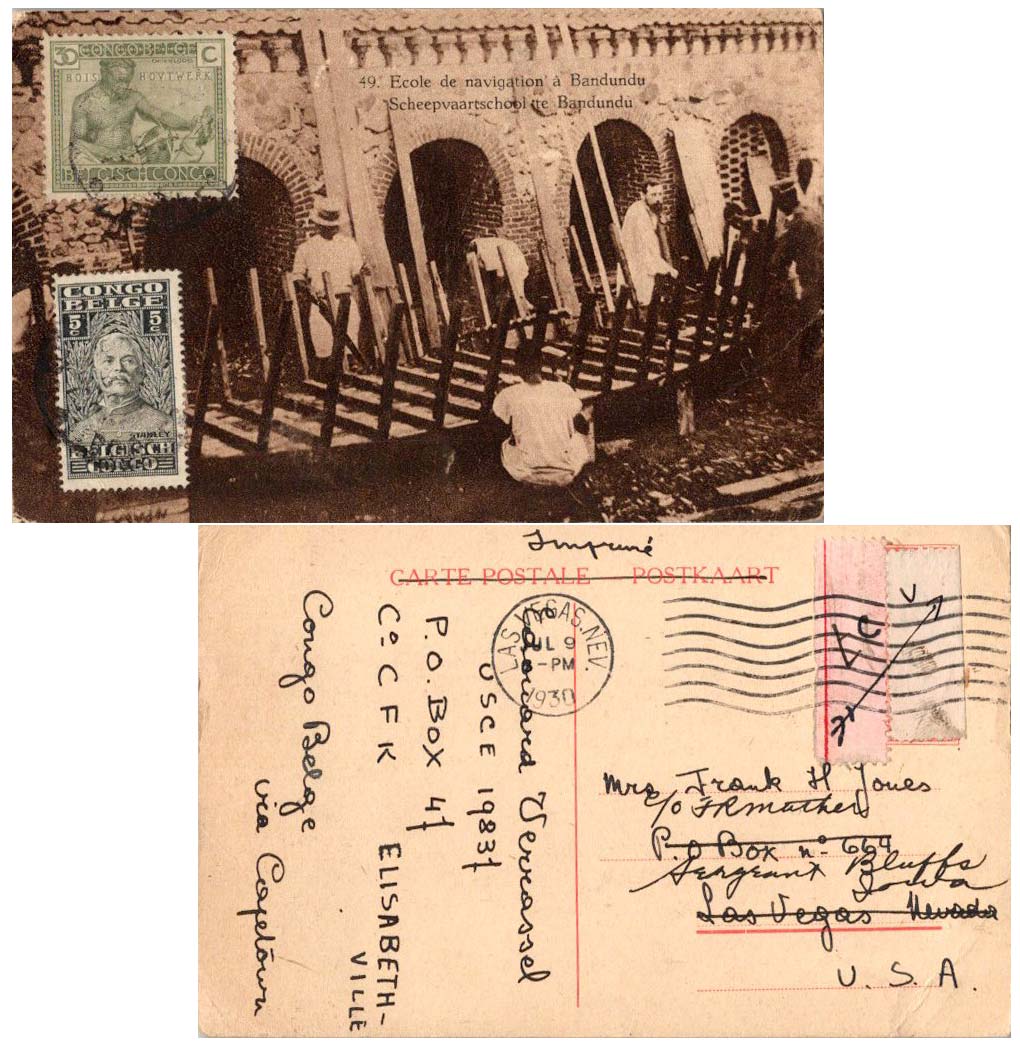 30 CONGO BELGE C
BOIS HOUTWERK
BELGISCH CONGO
49. Ecole de navigation à Bandundu
Scheepvaartschool te Bandundu
CONGO
BELGE
5c 5c
STANLEY
BELGISCH
CONGO
Imprimé
CARTE POSTALE POSTKAART
LAS VEGAS. NEV.
JUL 9
-PM
1930
Mrs Frank H Jones
c/o FR Mather
P.O Box nº 664
Sergeant Bluffs
Iowa
Las Vegas Nevada
U. S. A.
Vervassel
USCE 19837
P.O. BOX 47
Cº C F K ELISABETH-
VILLE
Congo Belge
via Capetown